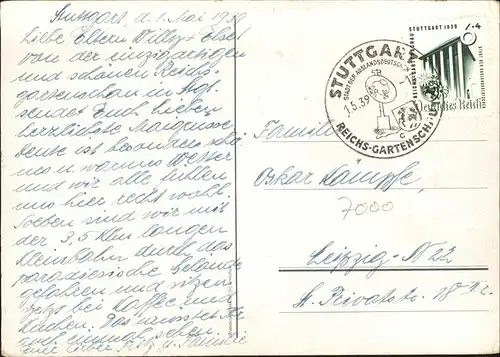 Stuttgart d. 1. Mai 1939
Liebe Eltern Willy + Elsel
von der einzigartigen
und schönen Reichs-
gartenschau in Stgt.
sendet Euch lieben
herzlichste Maigrüsse
heute ist besonders schö
und warmes Wetter
und wir alle fühlen
uns hier recht wohl.
Soeben sind wir mit
der 3,5 Klm langen
Kleinbahn durch das
paradiesische Gelände
gefahren und sitzen
jetzt bei Kaffee und
Kuchen. Das müsstet Ihr
auch einmal sehen.
Euer Fritz u. Familie
STUTTGART
STADT DER AUSLANDSDEUTSCHEN
1.5.39
REICHS-GARTENSCHAU
STUTTGART 1939
6+4
Deutsches Reich
Familie
Oskar Kampfe,
7000
Leipzig-N 22
St. Privatstr. 18